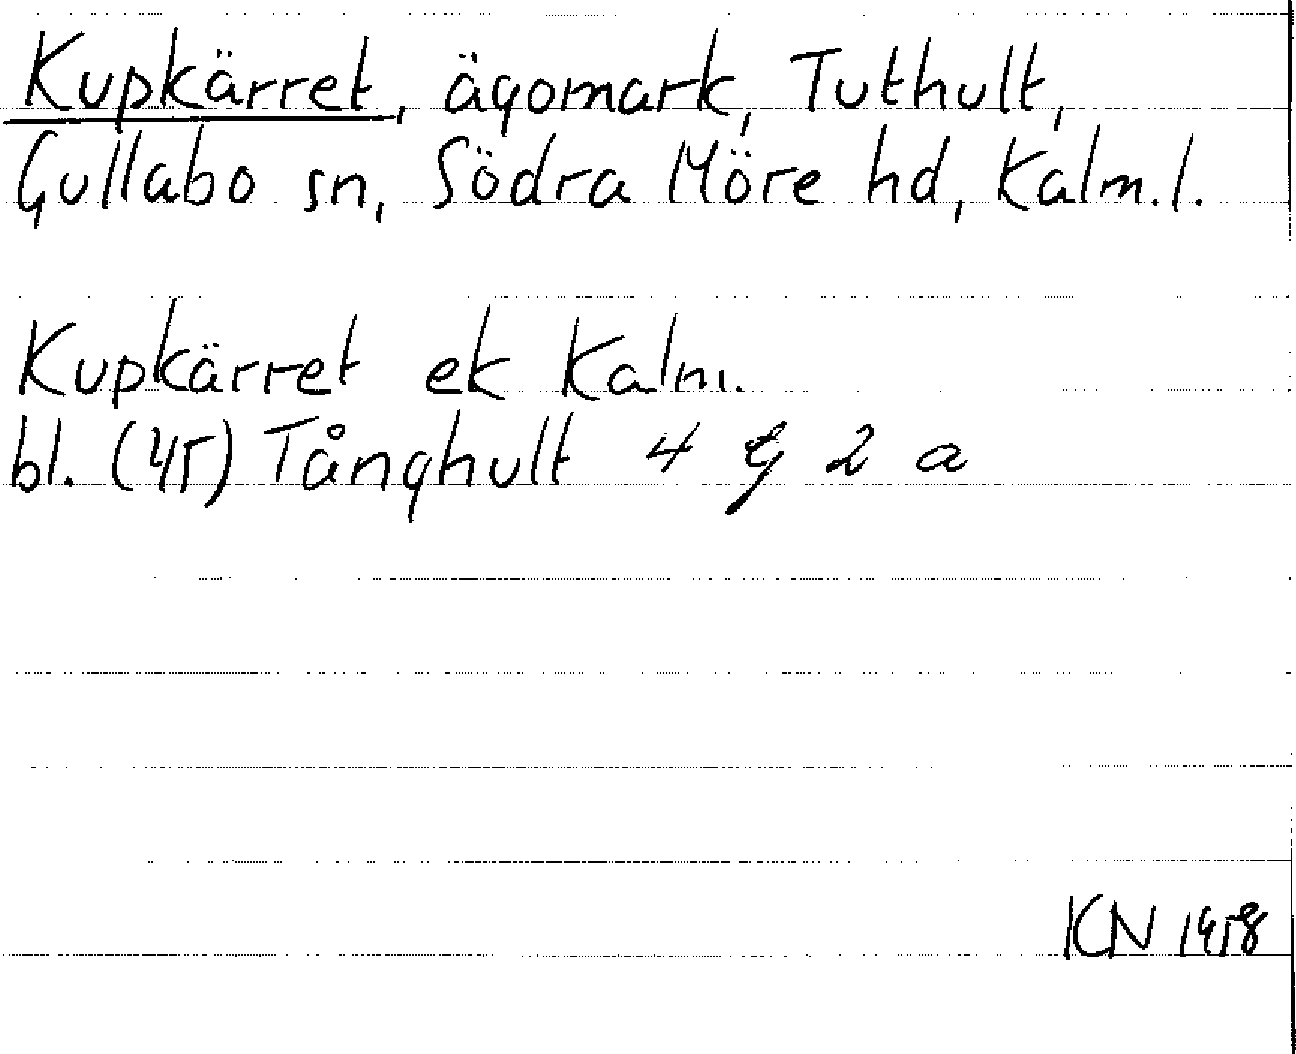 Kupkärret, ägomark, Tuthult,
Gullabo sn, Södra Möre hd, Kalm.l.
Kupkärret ek Kalm.
bl. (45) Tånghult 4 g 2 a
KN 1958